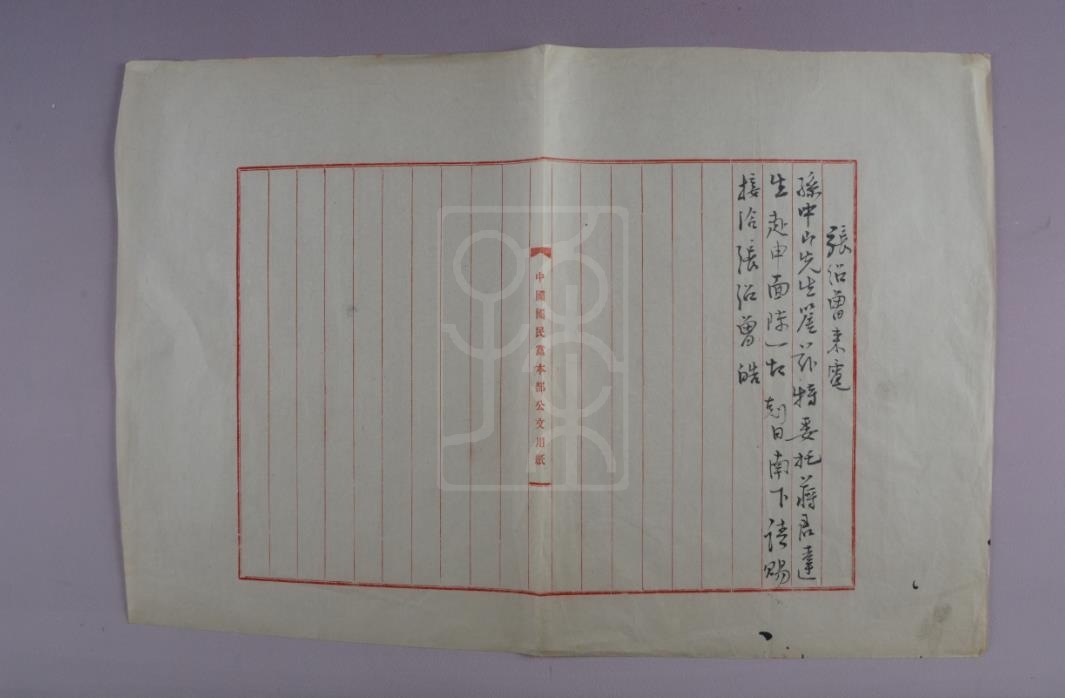 張紹曾來電
孫中山先生鑒茲特委托蔣君達
生赴申面陳一切剋日南下請賜
接洽張紹曾皓
中國國民黨本部公文用紙